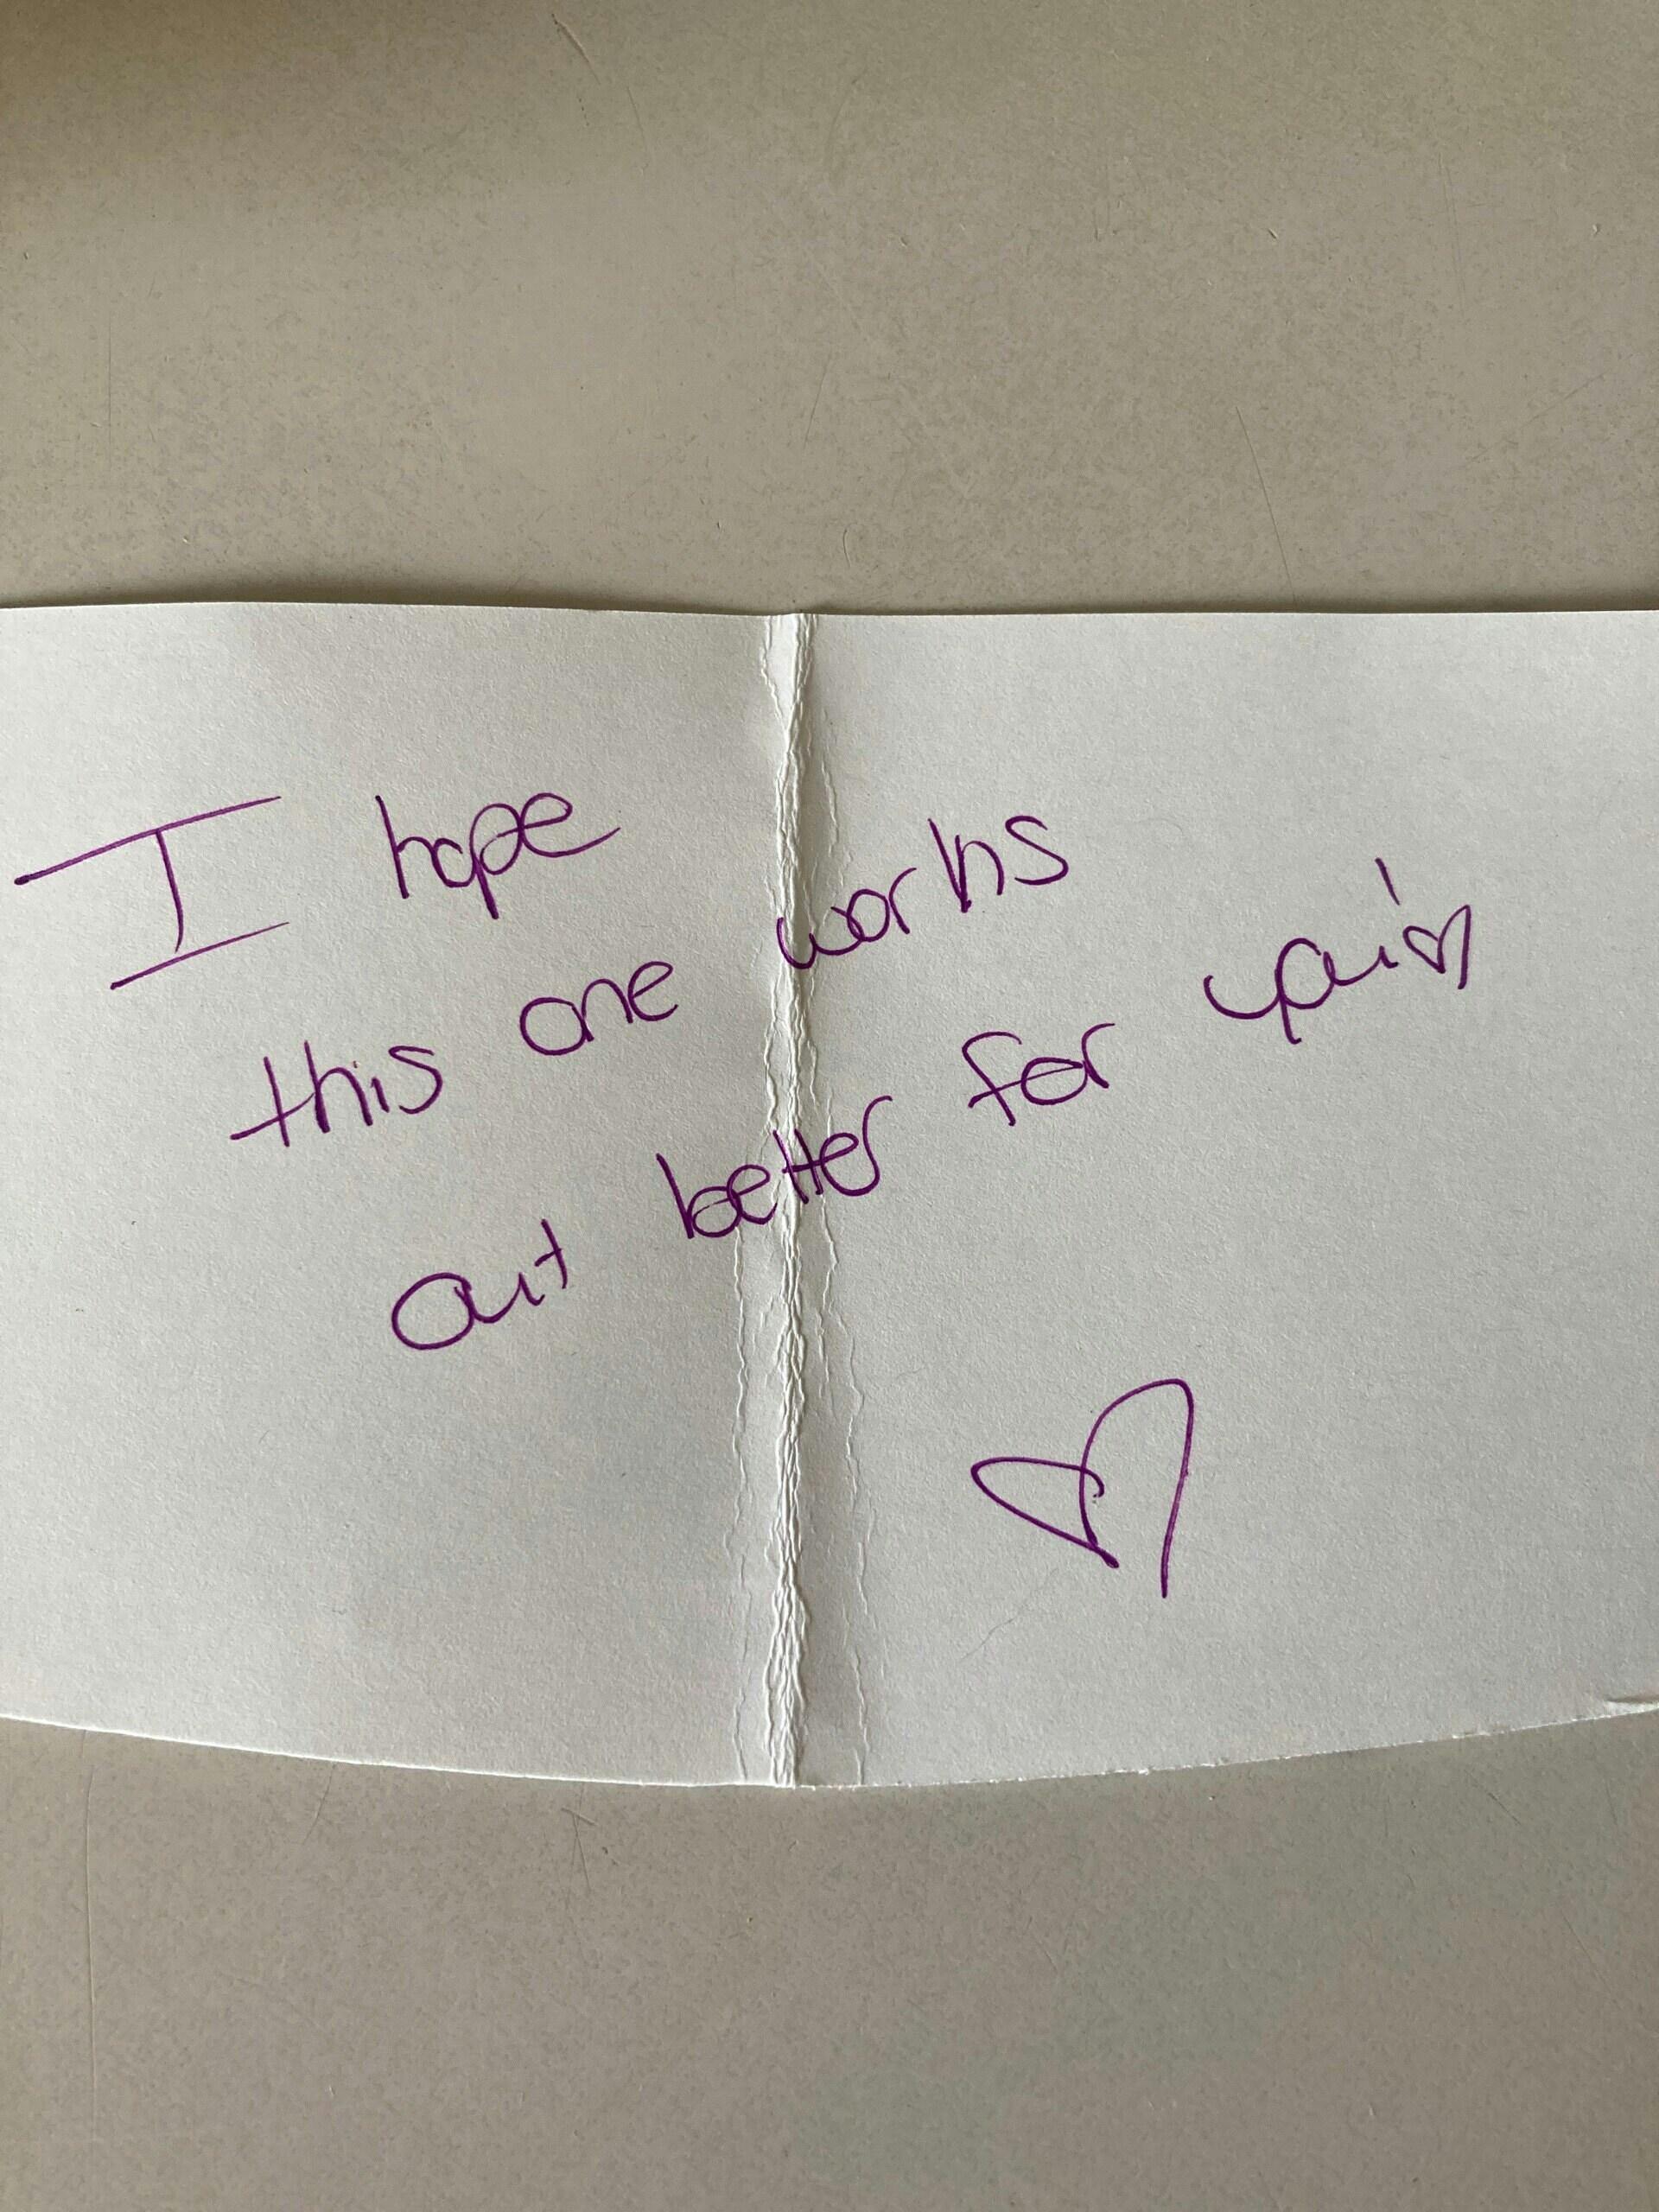 I hope
this one works
out better for you!♡
♡